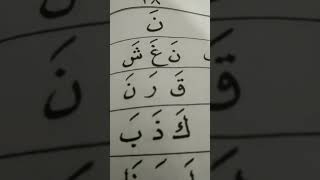 ١٨
نَ
نَ غَ شَ
قَ رَ نَ
كَ ذَ بَ